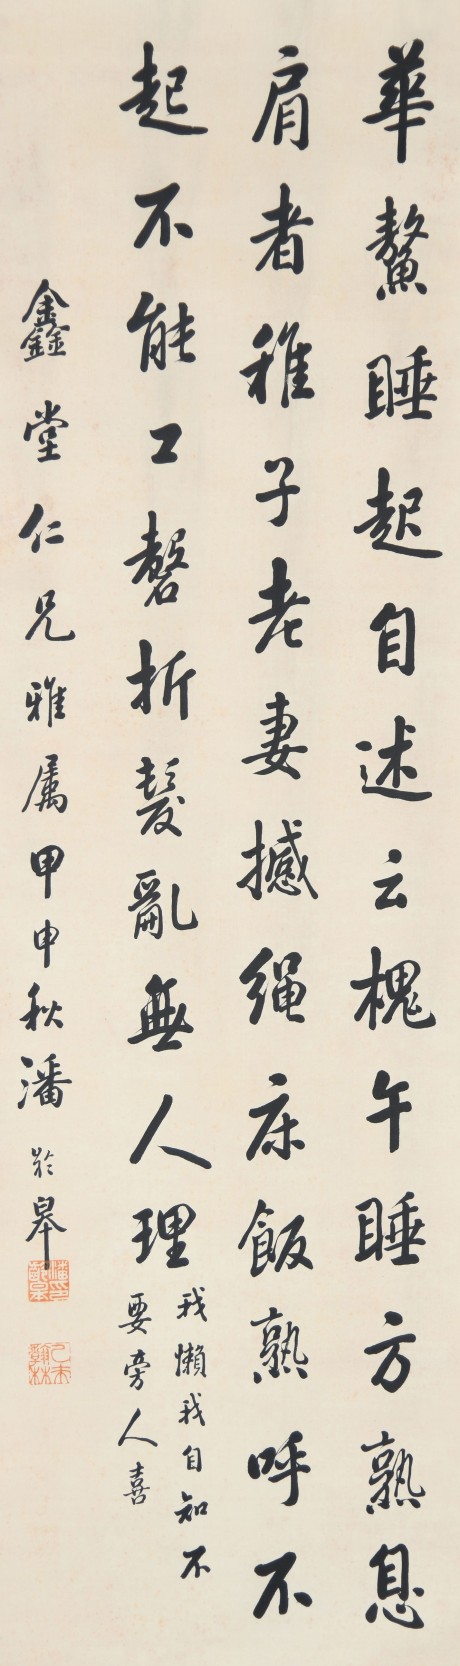 華鰲睡起自述云槐午睡方熟息
肩者稚子老妻撼繩床飯熟呼不
起不能工磬折髮亂無人理
我懶我自知不
要旁人喜
鑫堂仁兄雅属甲申秋潘齡皋
潘印齡皋
乙未翰林